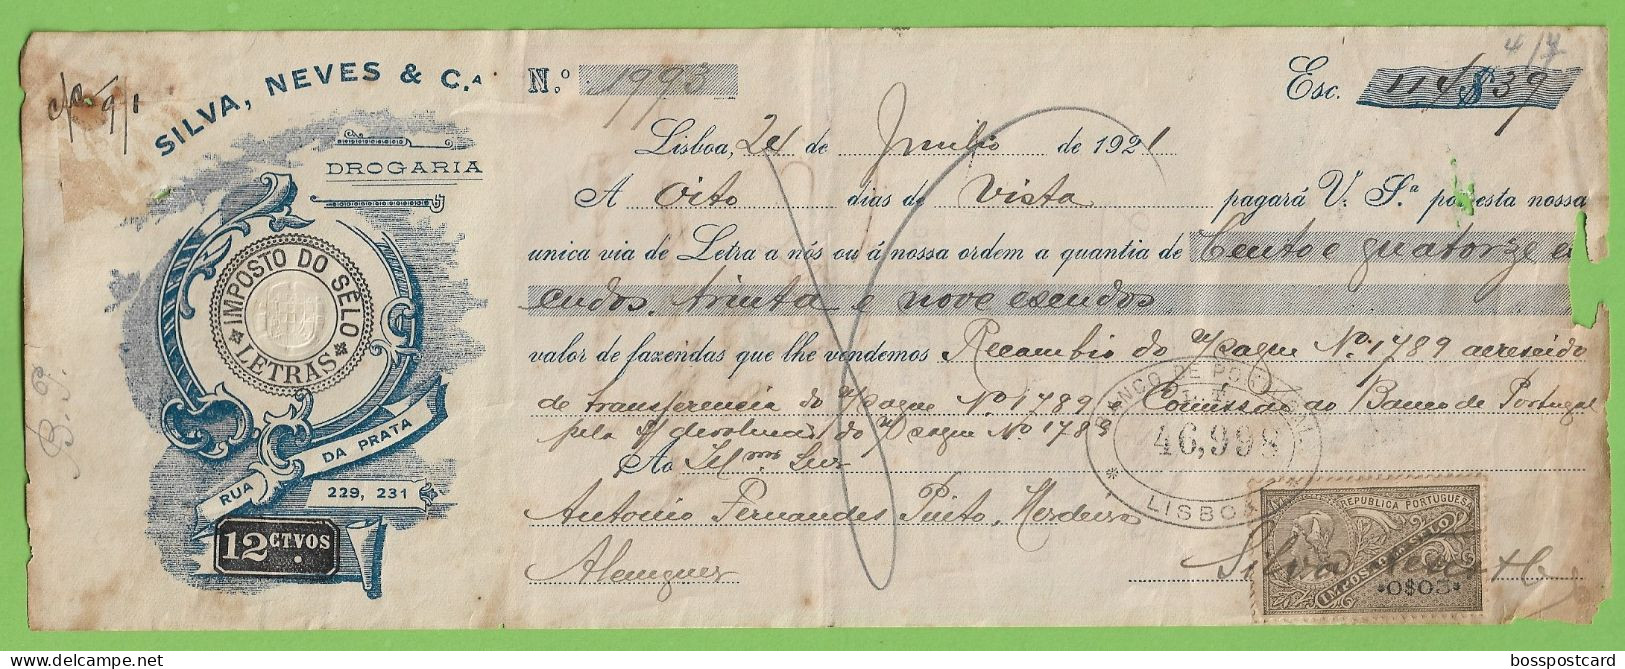 SILVA, NEVES & C.ª
DROGARIA
IMPOSTO DO SÊLO
LETRAS
RUA DA PRATA
229, 231
12 CTVOS
N.º 1993
Esc. 114$39
Lisboa, 24 de Junho de 1921
A Oito dias de Vista pagará V. S.ª por esta nossa
unica via de Letra a nós ou á nossa ordem a quantia de Cento e quatorze es
cudos, trinta e nove escudos
valor de fazendas que lhe vendemos Recambio do n/ saque Nº 1789 acrescido
de transferencia do n/ saque Nº 1789 Comissão ao Banco de Portugal
pela s/ devolucão do n/ saque Nº 1789
Ao Ilmo Snr
Antonio Fernandes Pinto, Herdeiros
Alemquer
BANCO DE PORTUGAL
46,998
* LISBOA *
REPUBLICA PORTUGUESA
IMPOSTO DO SELO
0$03
Silva Neves & C.
bosspostcard